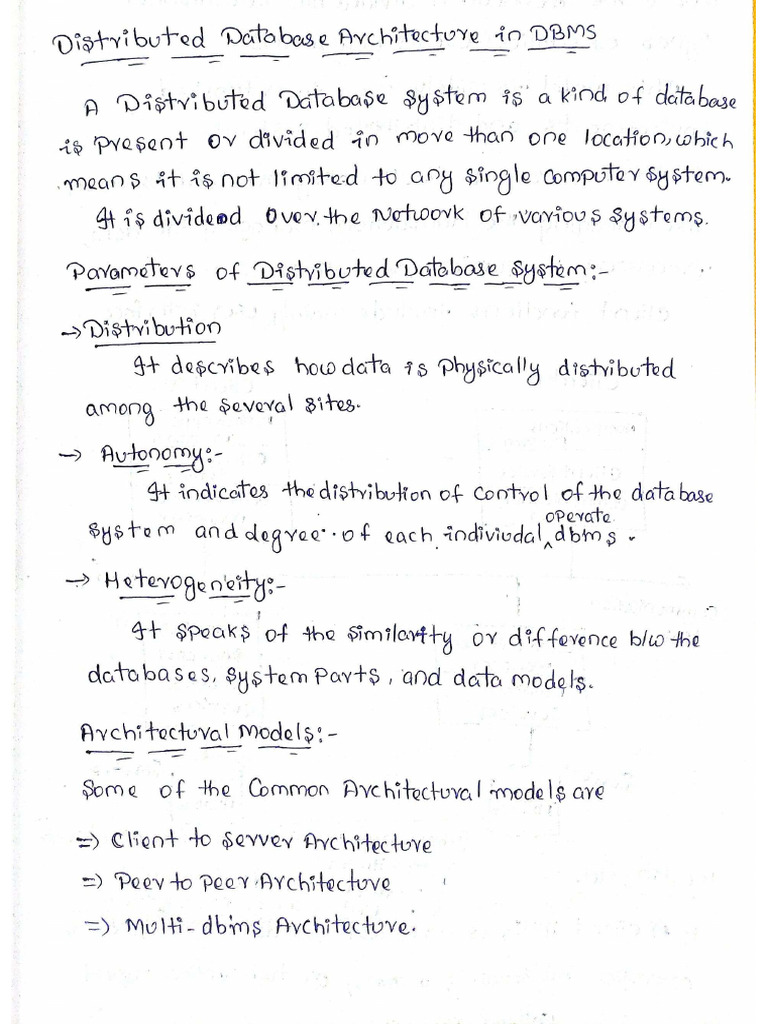 Distributed Database Architecture in DBMS
A Distributed Database system is a kind of database
is present or divided in more than one location, which
means it is not limited to any single computer system.
It is divided over the Network of various systems.
Parameters of Distributed Database system:-
→ Distribution
It describes how data is physically distributed
among the several sites.
→ Autonomy:-
It indicates the distribution of control of the database
operate
system and degree of each indiviudal ^ dbms.
→ Heterogeneity:-
It speaks of the similarity or difference b/w the
databases, system parts, and data models.
Architectural Models:-
Some of the Common Architectural models are
=> Client to server Architecture
=> Peer to peer Architecture
=> Multi-dbms Architecture.